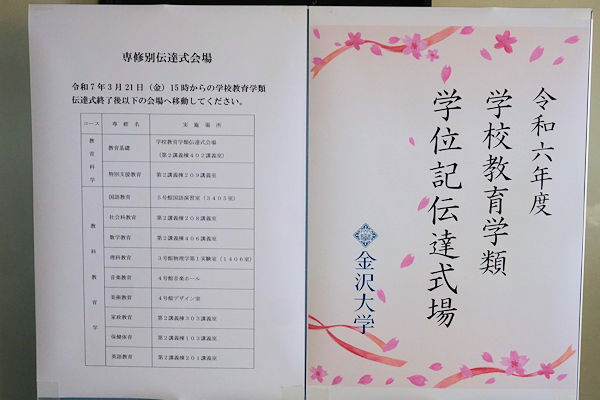 専修別伝達式会場
令和7年3月21日（金）15時からの学校教育学類
伝達式終了後以下の会場へ移動してください。
コース 専修名 実施場所
教育科学
教育基礎 学校教育学類伝達式会場
（第2講義棟402講義室）
特別支援教育 第2講義棟209講義室
教科教育学
国語教育 5号館国語演習室（3405室）
社会科教育 第2講義棟208講義室
数学教育 第2講義棟406講義室
理科教育 3号館物理学第1実験室（1406室）
音楽教育 4号館音楽ホール
美術教育 4号館デザイン室
家政教育 第2講義棟303講義室
保健体育 第2講義棟103講義室
英語教育 第2講義棟201講義室
令和六年度
学校教育学類
学位記伝達式場
金沢大学